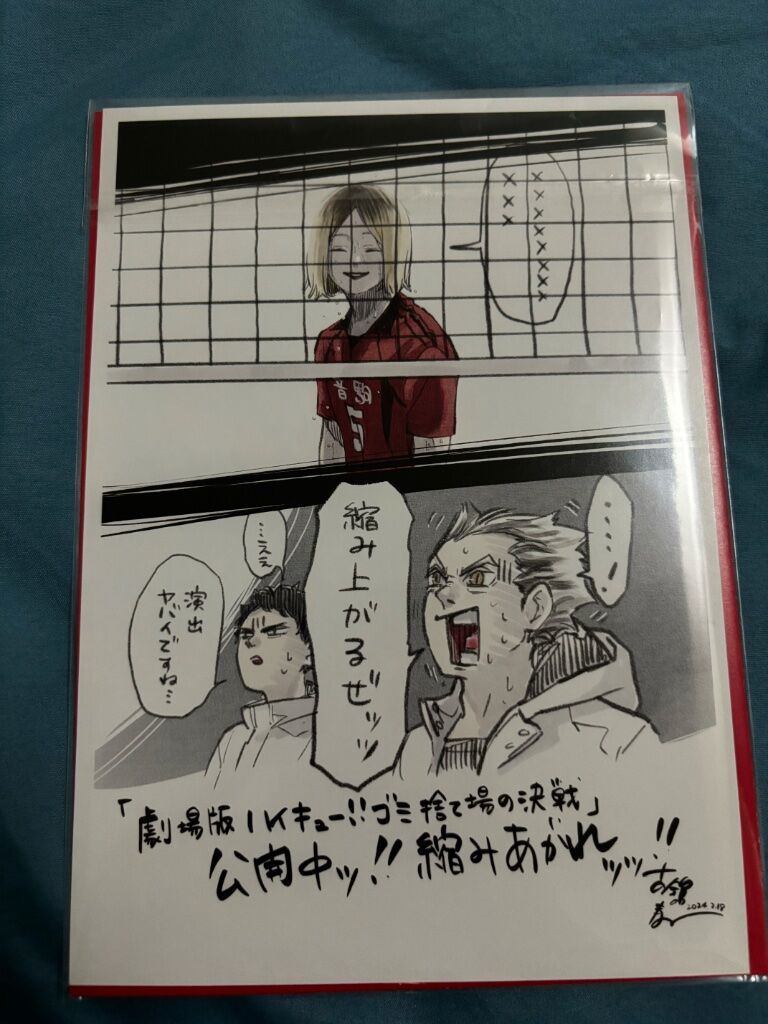 ×××××××
×××
音駒
5
……!
縮み上がるぜッッ
……ええ
演出
ヤバイですね…
「劇場版ハイキュー!!ゴミ捨て場の決戦」
公開中ッ!! 縮みあがれッッッ!!
古舘春一
2024.2.18